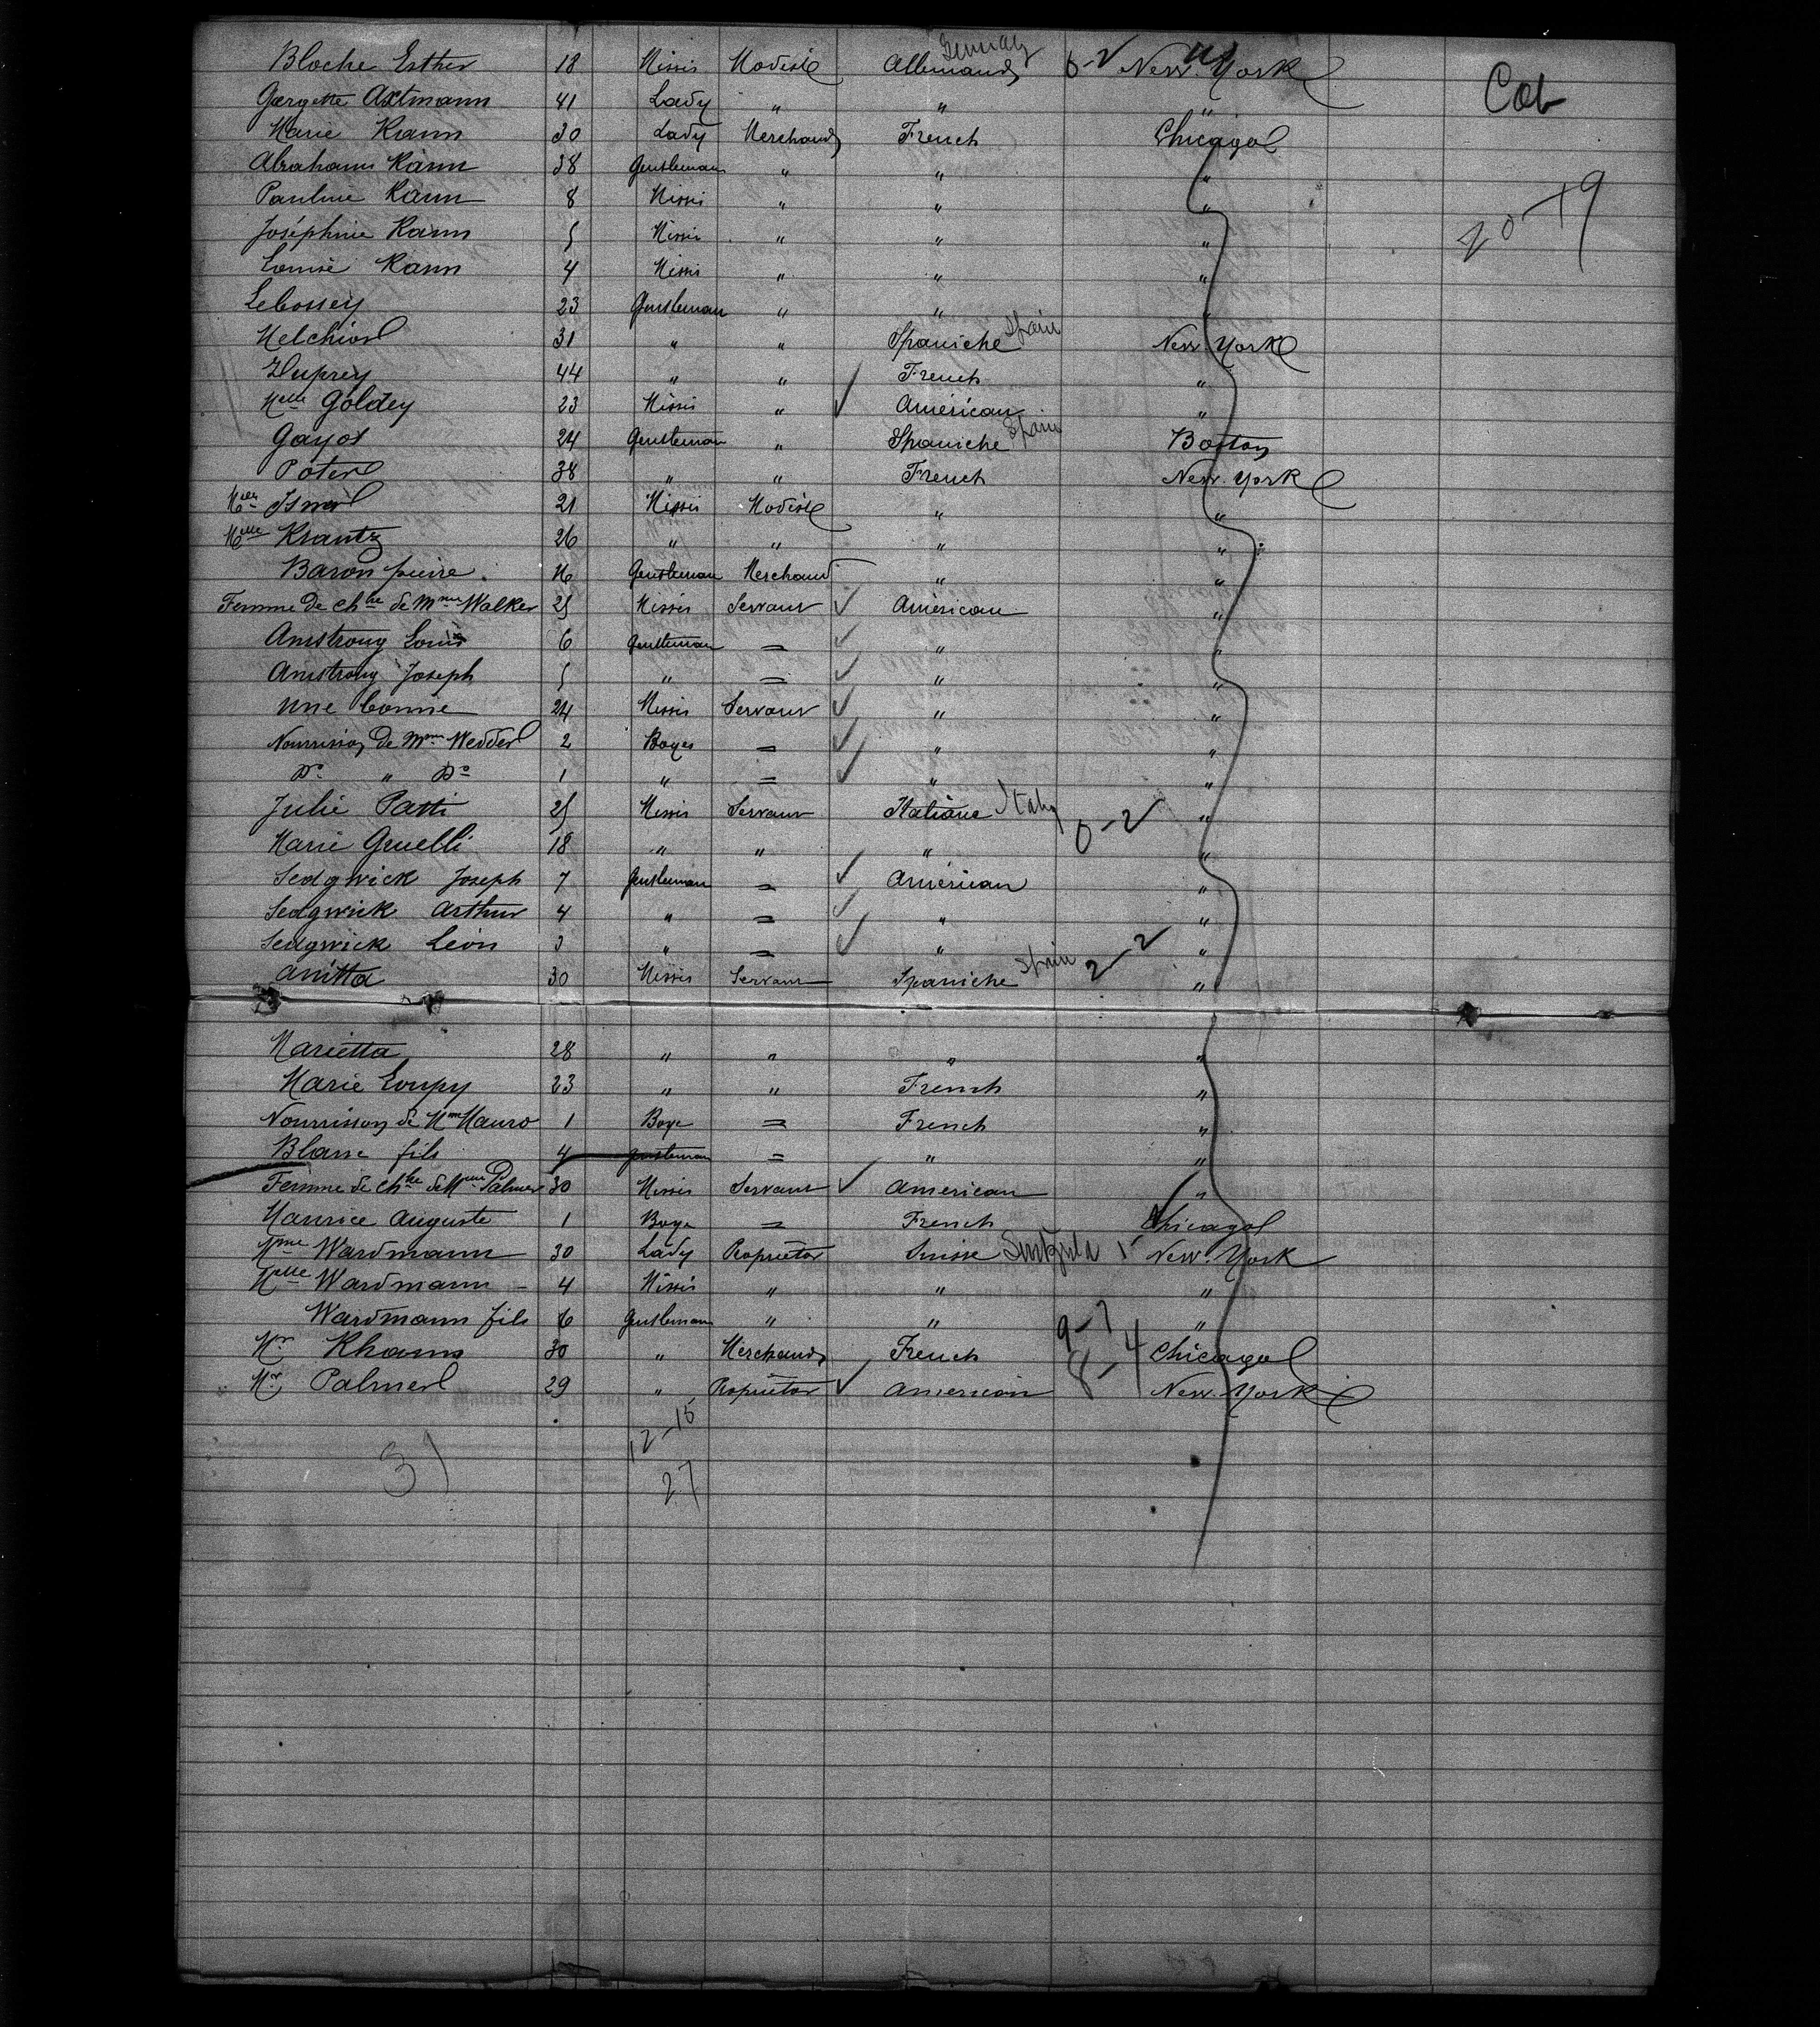 Germany
Bloche Esther 18 Missis Modiste Allemands 0-2 New York
Cab
Georgette Axtmann 41 Lady " " "
Marie Kann 30 Lady Merchands French Chicago
Abraham Kann 38 Gentleman " " "
Pauline Kann 8 Missis " " "
20-19
Joséphine Kann 5 Missis " " "
Louise Kann 4 Missis " " "
Lebossey 23 Gentleman " " "
Melchior 31 " " Spaniche Spain New York
Duprey 44 " " French "
Melle Goldey 23 Missis " Américan "
Gayot 24 Gentleman " Spaniche Spain Boston
Poter 38 " " French New York
Israel 21 Missis Modiste " "
Melle Krantz 26 " " " "
Baron pierre 16 Gentleman Merchand " "
Femme de chbre de Mme Walker 25 Missis Servant Américan "
Amstrong Louis 6 Gentleman = " "
Amstrong Joseph 5 " = " "
Une bonne 24 Missis Servant " "
Nourrisson de Mme Wedder 2 Boyes = " "
Do " Do 1 " = " "
Julie Patti 25 Missis Servant Italiane Italy 0-2 "
Marie Gruelli 18 " " " "
Sedgwick Joseph 7 Gentleman = Américan "
Sedgwick Arthur 4 " = " "
Sedgwick Léon 3 " = " "
Anitta 30 Missis Servant Spaniche Spain 2-2 "
Marietta 28 " " " "
Marie Loupy 23 " " French "
Nourrisson de Mme Mauro 1 Boye = French "
Blasse fils 4 Gentleman = " "
Femme de chbre de Mme Palmer 30 Missis Servant American "
Maurice Auguste 1 Boye = French Chicago
Mme Wardmann 30 Lady Proprietor Suisse New York
Melle Wardmann 4 Missis " " "
Wardmann fils 6 Gentleman " " "
9-7
Mr Khann 30 " Merchands French 8-4 Chicago
Mr Palmer 29 " Proprietor American New York
12-15
31 27